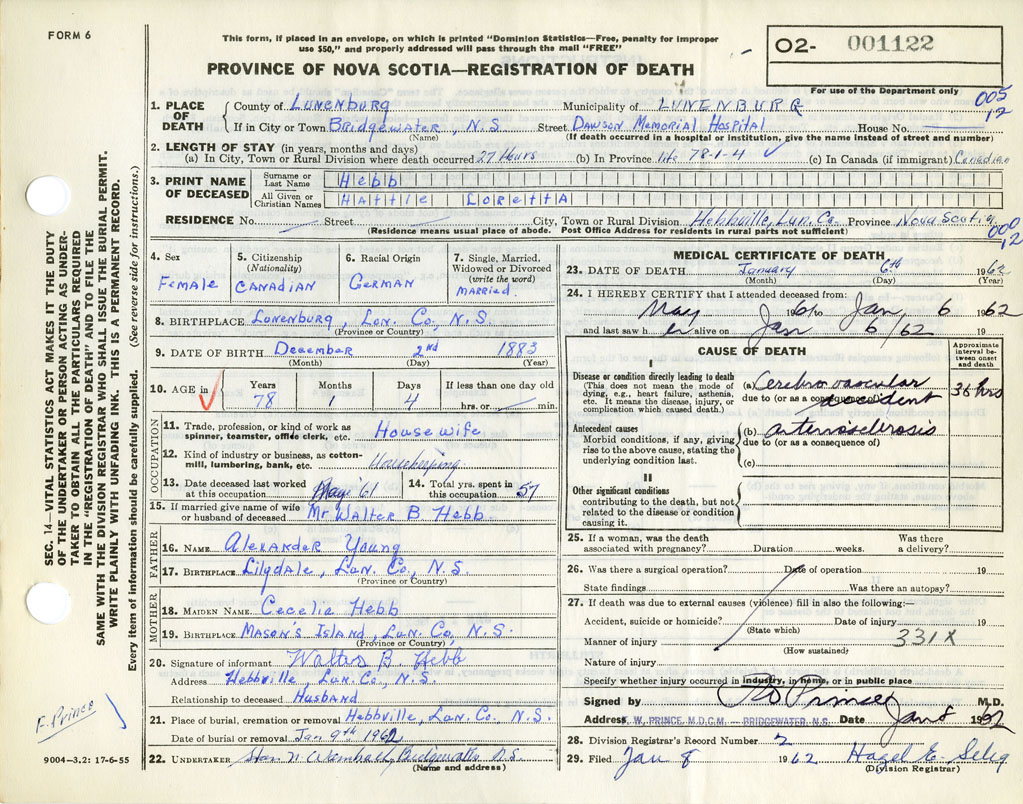 FORM 6
This form, if placed in an envelope, on which is printed "Dominion Statistics—Free, penalty for improper
use $50," and properly addressed will pass through the mail "FREE"
PROVINCE OF NOVA SCOTIA—REGISTRATION OF DEATH
02- 001122
For use of the Department only
005
12
1. PLACE OF DEATH
County of Lunenburg Municipality of LUNENBURG
If in City or Town Bridgewater, N.S. Street Dawson Memorial Hospital House No.
(Name) (If death occurred in a hospital or institution, give the name instead of street and number)
2. LENGTH OF STAY (in years, months and days)
(a) In City, Town or Rural Division where death occurred 27 Hours (b) In Province life 78-1-4 (c) In Canada (if immigrant) Canadian
3. PRINT NAME OF DECEASED
Surname or Last Name Hebb
All Given or Christian Names HATTIE LORETTA
RESIDENCE No. Street City, Town or Rural Division Hebbville, Lun. Co. Province Nova Scotia
(Residence means usual place of abode. Post Office Address for residents in rural parts not sufficient)
000
12
4. Sex Female
5. Citizenship (Nationality) CANADIAN
6. Racial Origin GERMAN
7. Single, Married, Widowed or Divorced (write the word) MARRIED.
8. BIRTHPLACE Lonenburg, Lon. Co., N.S.
(Province or Country)
9. DATE OF BIRTH December 2nd 1883
(Month) (Day) (Year)
10. AGE in Years 78 Months 1 Days 4 If less than one day old hrs. or min.
OCCUPATION
11. Trade, profession, or kind of work as spinner, teamster, office clerk, etc. Housewife
12. Kind of industry or business, as cotton-mill, lumbering, bank, etc. Housekeeping
13. Date deceased last worked at this occupation May '61
14. Total yrs. spent in this occupation 57
15. If married give name of wife or husband of deceased Mr Walter B. Hebb
FATHER
16. NAME Alexander Young
17. BIRTHPLACE Lilydale, Lon. Co., N.S.
(Province or Country)
MOTHER
18. MAIDEN NAME Cecelia Hebb
19. BIRTHPLACE Mason's Island, Lon. Co, N.S.
(Province or Country)
20. Signature of informant Walter B. Hebb
Address Hebbville, Lon. Co., N.S.
Relationship to deceased Husband
21. Place of burial, cremation or removal Hebbville, Lon. Co. N.S.
Date of burial or removal Jan 9th 1962
22. UNDERTAKER Bridgewater N.S.
(Name and address)
MEDICAL CERTIFICATE OF DEATH
23. DATE OF DEATH January 6th 1962
(Month) (Day) (Year)
24. I HEREBY CERTIFY that I attended deceased from:
May 1961 to Jan 6 1962
and last saw her alive on Jan 6/62 19
CAUSE OF DEATH
Approximate interval between onset and death
I
Disease or condition directly leading to death
(This does not mean the mode of dying, e.g., heart failure, asthenia, etc. It means the disease, injury, or complication which caused death.)
(a) Cerebro vascular accident 36 hrs
due to (or as a consequence of)
Antecedent causes
Morbid conditions, if any, giving rise to the above cause, stating the underlying condition last.
(b) arteriosclerosis
due to (or as a consequence of)
(c)
II
Other significant conditions
contributing to the death, but not related to the disease or condition causing it.
25. If a woman, was the death associated with pregnancy? Duration weeks. Was there a delivery?
26. Was there a surgical operation? Date of operation 19
State findings Was there an autopsy?
27. If death was due to external causes (violence) fill in also the following:—
Accident, suicide or homicide? Date of injury 19
(State which)
Manner of injury 331X
(How sustained)
Nature of injury
Specify whether injury occurred in industry, in home, or in public place
Signed by F W Prince M.D.
Address F. W. PRINCE, M.D.C.M. — BRIDGEWATER, N.S. Date Jan 8 1962
28. Division Registrar's Record Number 2
29. Filed Jan 8 1962 Hazel E. Selig
(Division Registrar)
SEC. 14—VITAL STATISTICS ACT MAKES IT THE DUTY
OF THE UNDERTAKER OR PERSON ACTING AS UNDER-
TAKER TO OBTAIN ALL THE PARTICULARS REQUIRED
IN THE "REGISTRATION OF DEATH" AND TO FILE THE
SAME WITH THE DIVISION REGISTRAR WHO SHALL ISSUE THE BURIAL PERMIT.
WRITE PLAINLY WITH UNFADING INK. THIS IS A PERMANENT RECORD.
Every item of information should be carefully supplied. (See reverse side for instructions.)
F. Prince
9004-3.2: 17-6-55